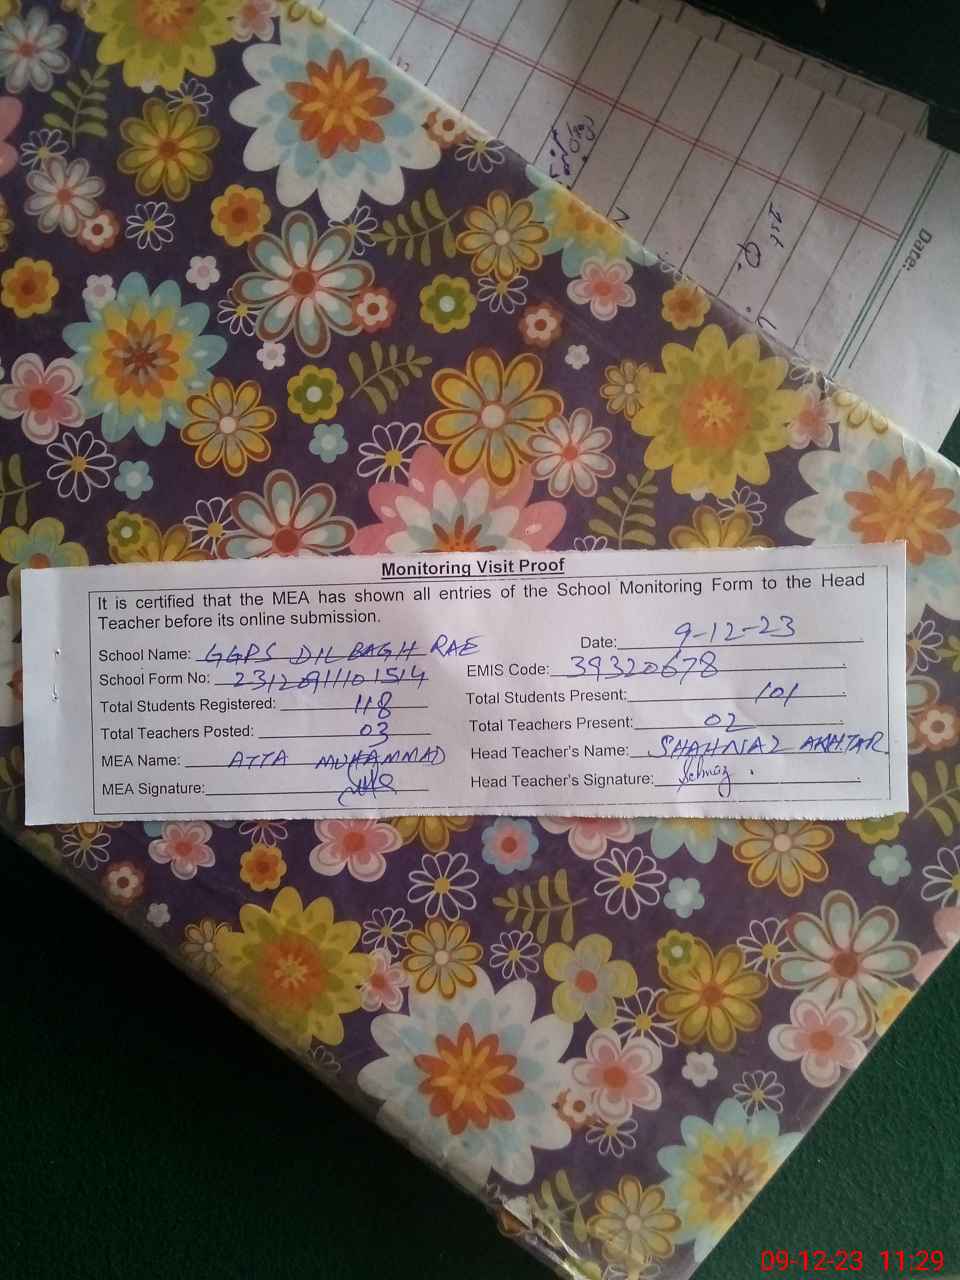 Date:
1st Q.
Monitoring Visit Proof
It is certified that the MEA has shown all entries of the School Monitoring Form to the Head
Teacher before its online submission.
School Name: GGPS DIL BAGH RAE
Date: 9-12-23
School Form No: 2312091110 1514
EMIS Code: 39320678
Total Students Registered: 118
Total Students Present: 101
Total Teachers Posted: 03
Total Teachers Present: 02
MEA Name: ATTA MUHAMMAD
Head Teacher's Name: SHAHNAZ AKHTAR
MEA Signature:
Head Teacher's Signature:
09-12-23 11:29